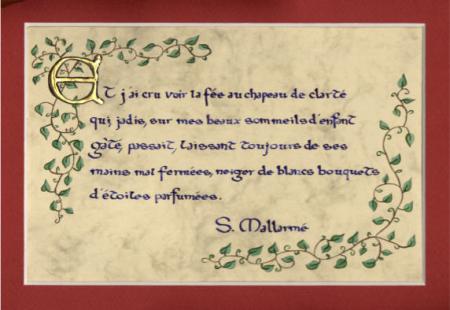 Et j'ai cru voir la fée au chapeau de clarté
qui jadis, sur mes beaux sommeils d'enfant
gâté, passait, laissant toujours de ses
mains mal fermées, neiger de blancs bouquets
d'étoiles parfumées.
S. Mallarmé